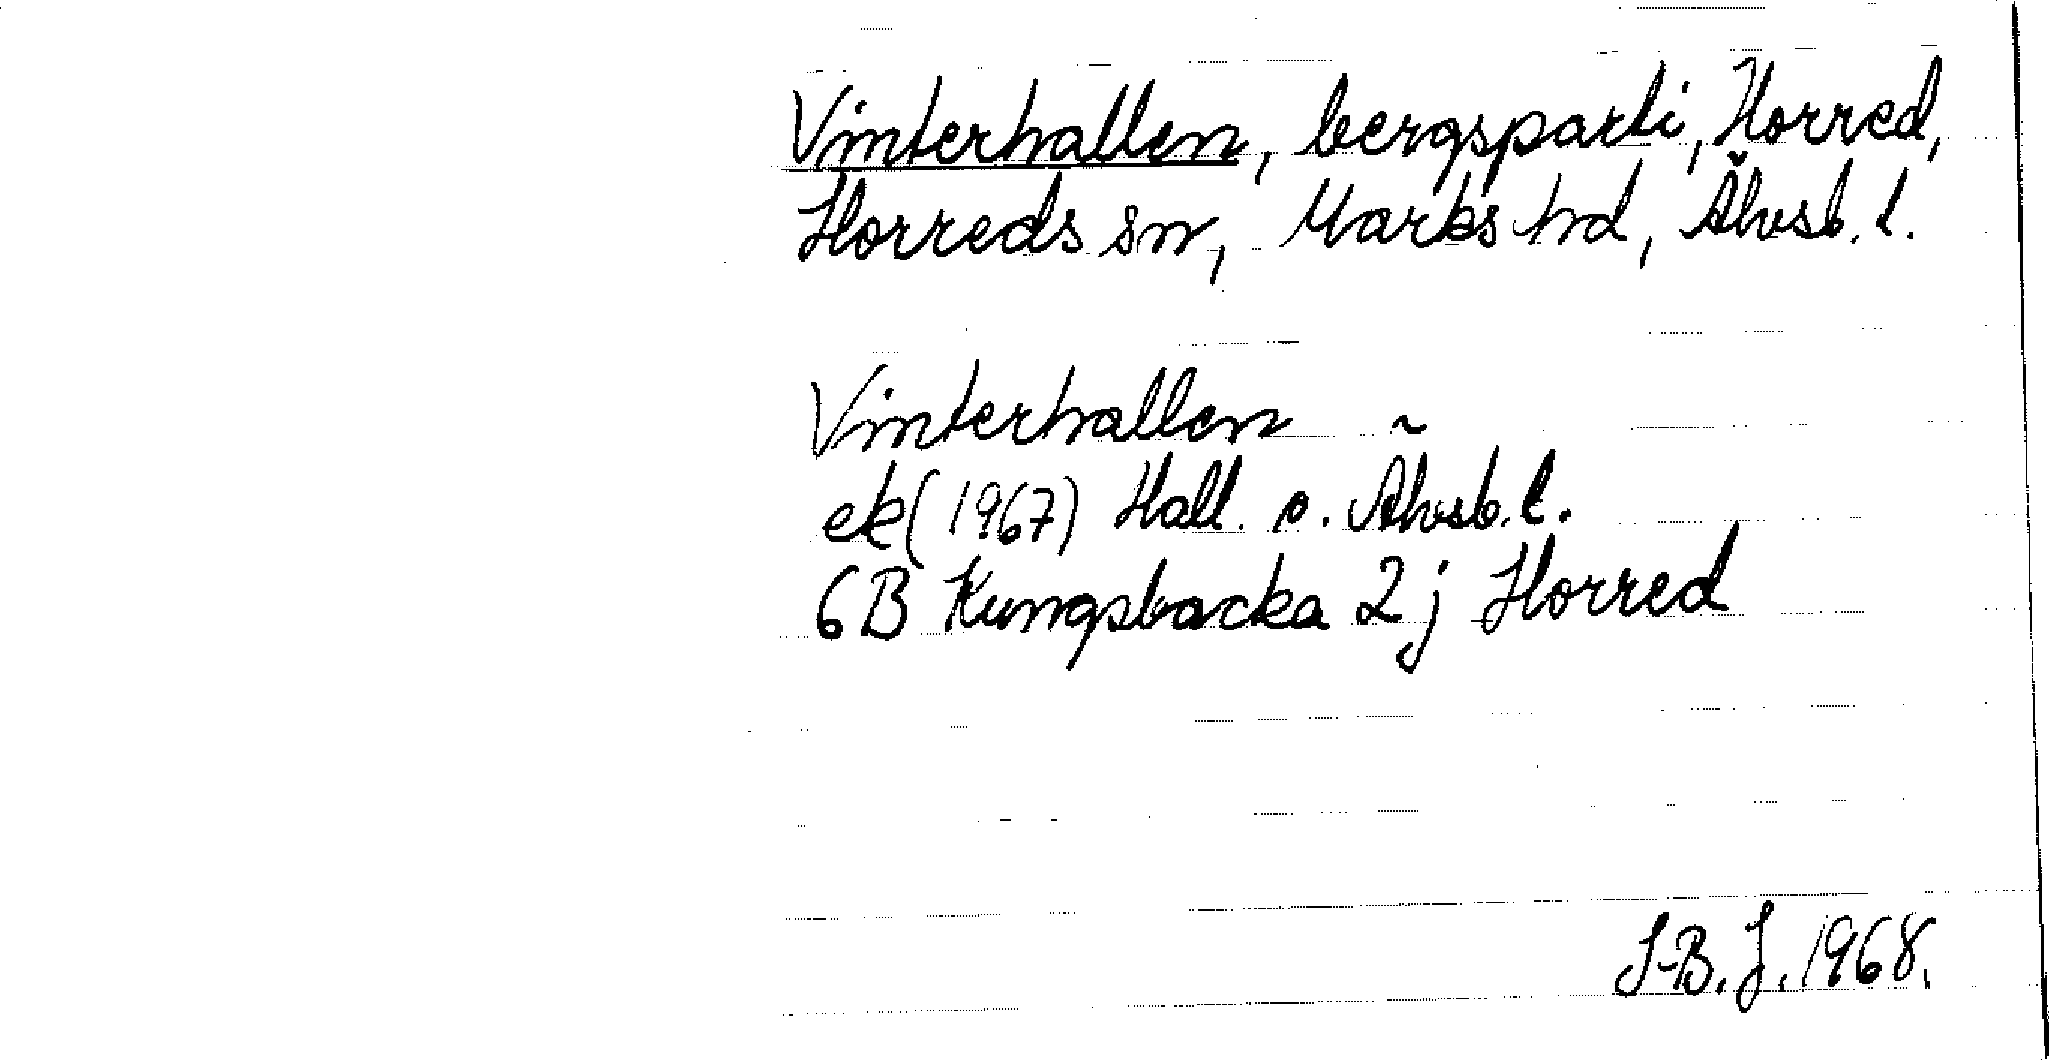 Vinterhallen, bergsparti, Horred,
Horreds sn, Marks hd, Älvsb. l.
Vinterhallen
ek (1967) Hall. o. Älvsb. l.
6B Kungsbacka 2j Horred
S-B. J. 1968.